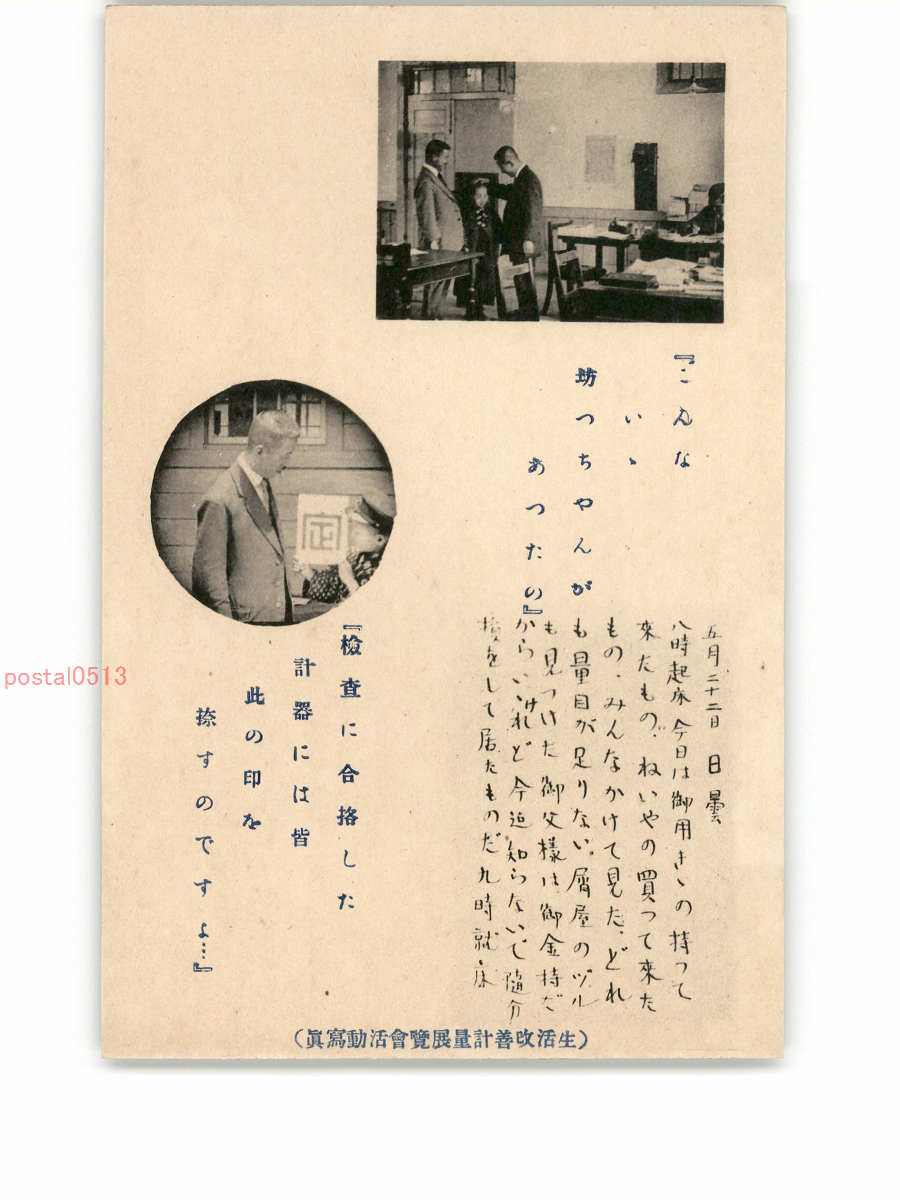 『こんな
いゝ
坊つちやんが
あつたの』
五月二十二日 日 曇
八時起床 今日は御用きゝの持つて
来たもの、ねいやの買つて来た
もの、みんなかけて見た、どれ
も量目が足りない。屑屋のヅル
も見つけた 御父様は御金持だ
からいゝけれど今迠知らないで随分
損をして居たものだ 九時就床
『檢査に合格した
計器には皆
此の印を
捺すのですよ…』
定
(生活改善計量展覽會活動寫眞)
postal0513